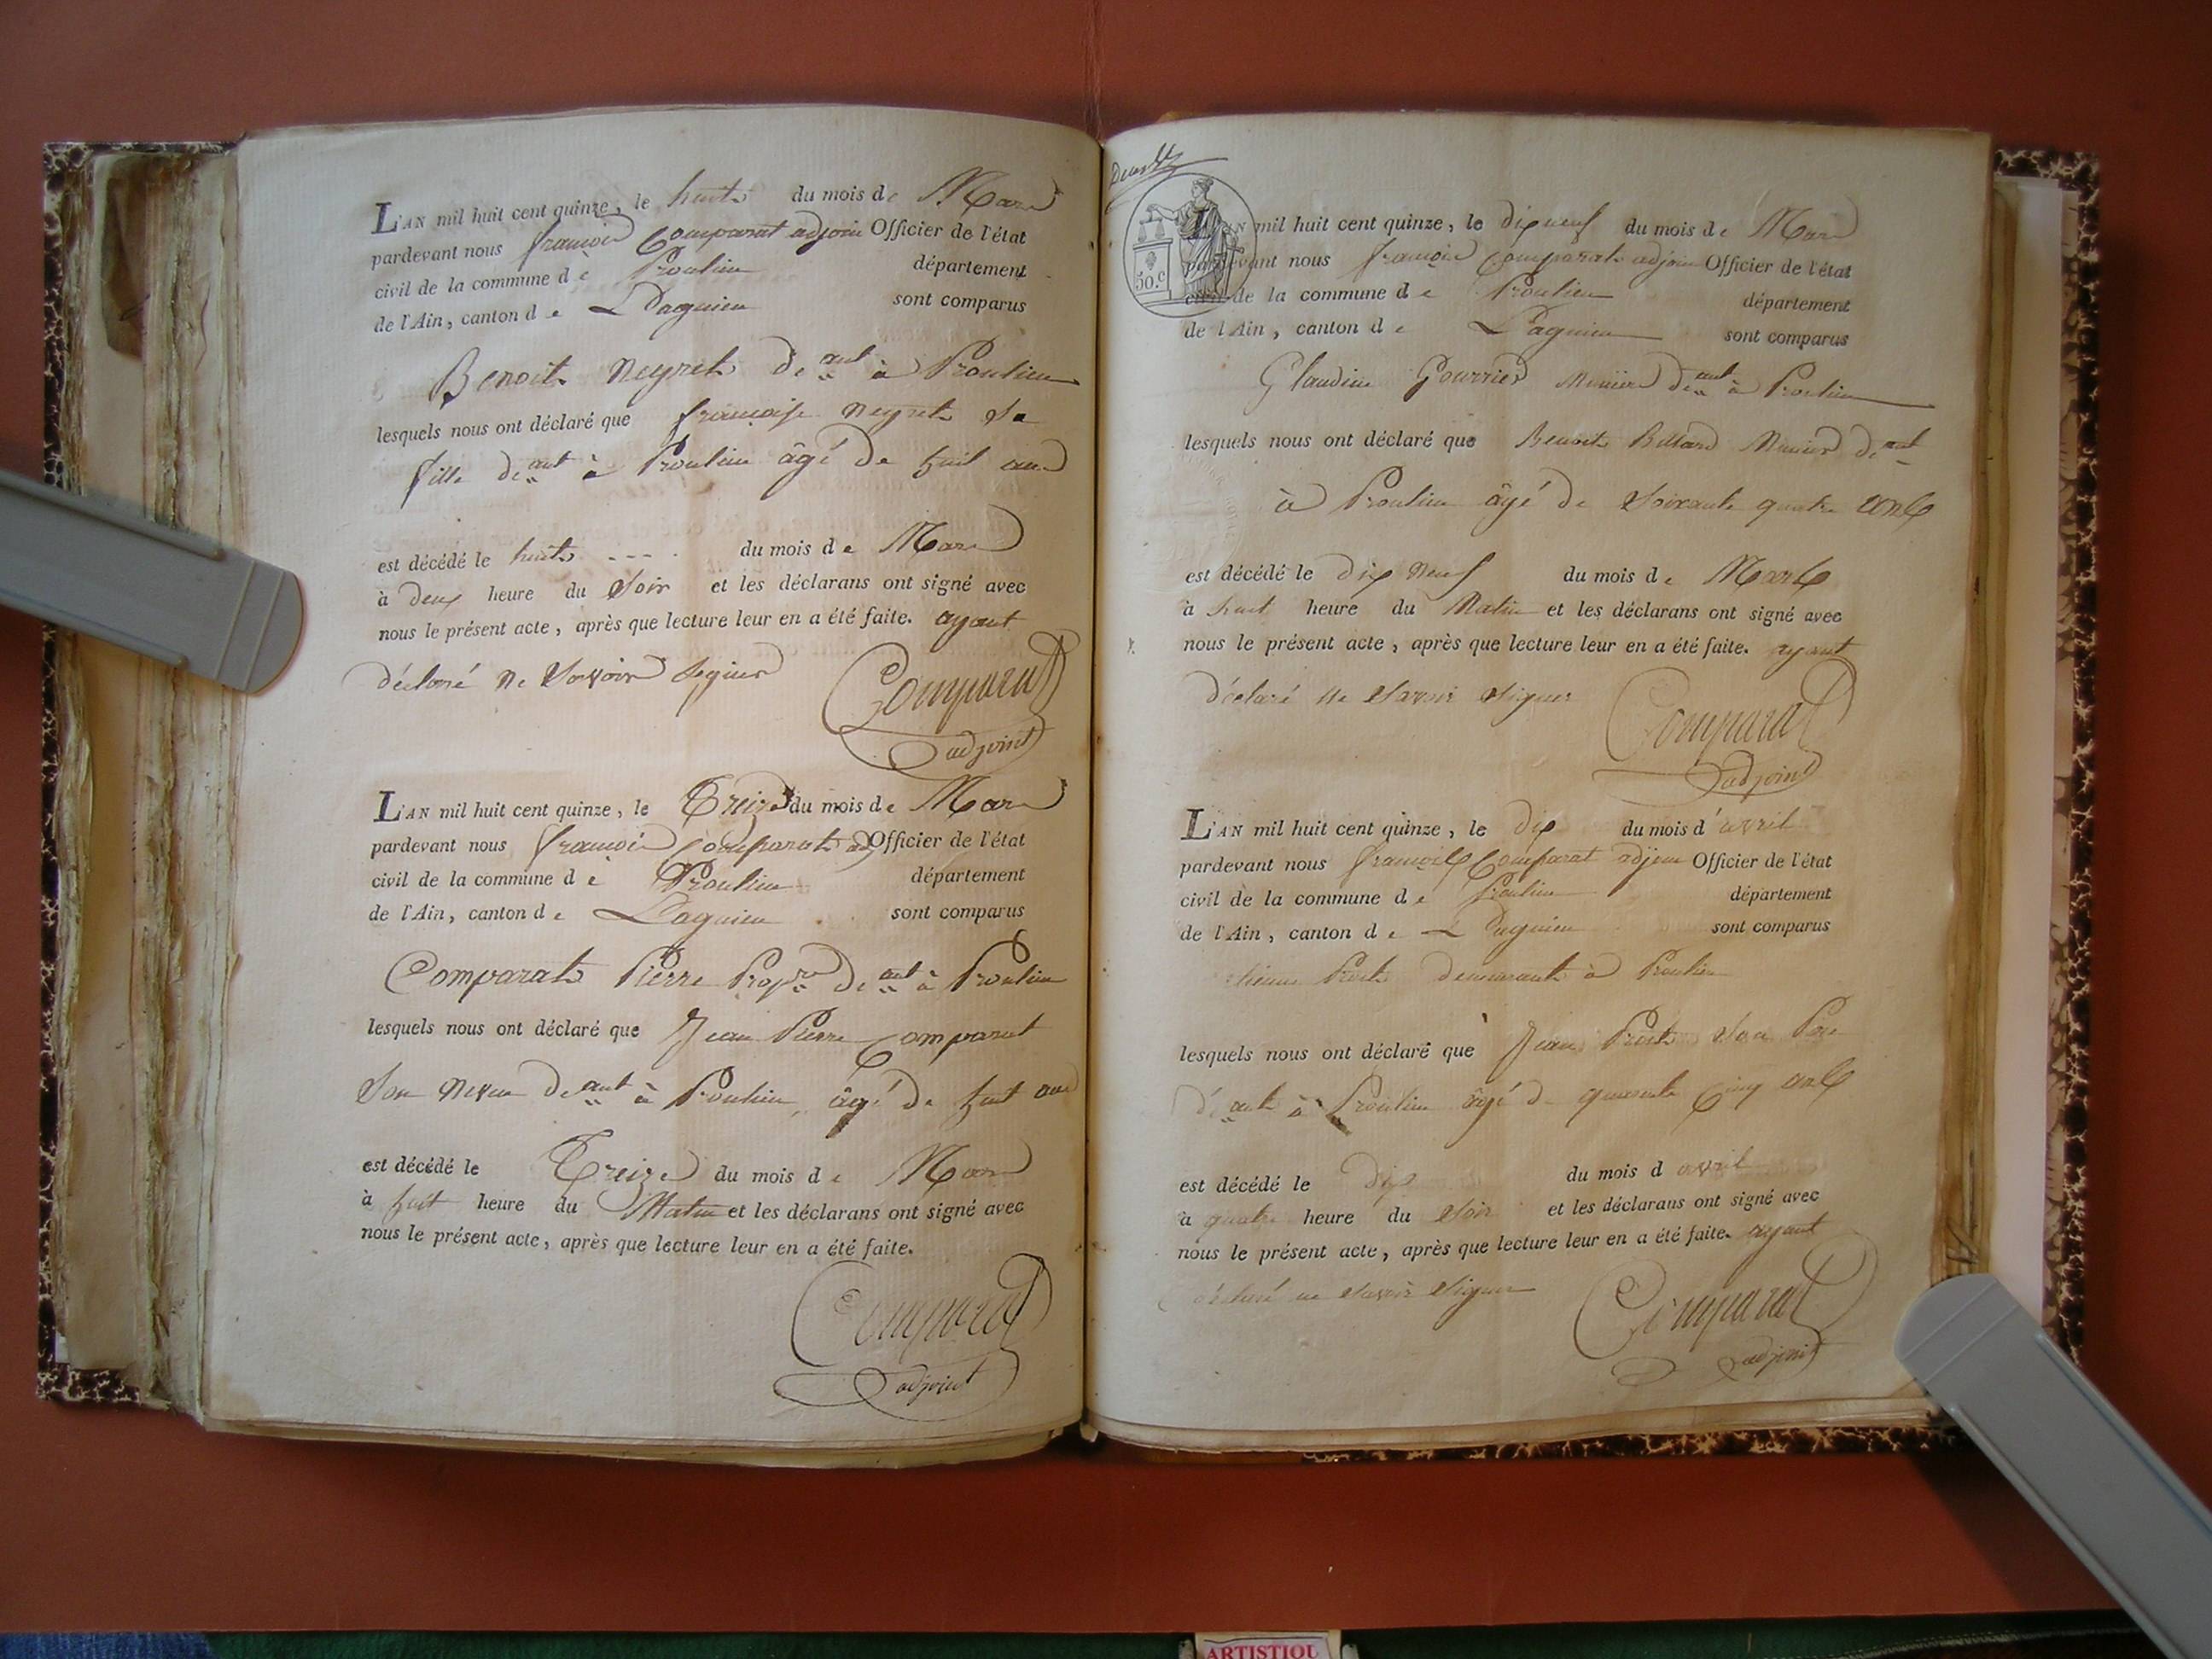 L'AN mil huit cent quinze, le huit du mois de Mars
pardevant nous françois Comparat adjoin Officier de l'état
civil de la commune de Proulieu département
de l'Ain, canton de Lagnieu sont comparus
Benoit Neyret de.ant à Proulieu
lesquels nous ont déclaré que françoise Neyret Sa
fille de.ant à Proulieu âgé de huit ans
est décédé le huit du mois de Mars
à deux heure du Soir et les déclarans ont signé avec
nous le présent acte, après que lecture leur en a été faite. ayant
déclaré ne Savoir Signer
Comparat
adjoint
L'AN mil huit cent quinze, le Treize du mois de Mars
pardevant nous françois Comparat adj Officier de l'état
civil de la commune de Proulieu département
de l'Ain, canton de Lagnieu sont comparus
Comparat Pierre Prop.re de.ant à Proulieu
lesquels nous ont déclaré que Jean Pierre Comparat
Son Neveu de.ant à Proulieu, âgé de huit ans
est décédé le Treize du mois de Mars
à huit heure du Matin et les déclarans ont signé avec
nous le présent acte, après que lecture leur en a été faite.
Comparat
adjoint
50.c
L'AN mil huit cent quinze, le dix neuf du mois de Mars
pardevant nous françois Comparat adjoin Officier de l'état
civil de la commune de Proulieu département
de l'Ain, canton de Lagnieu sont comparus
Claudine de.ant à Proulieu
lesquels nous ont déclaré que Benoit Billard de.ant
à Proulieu âgé de Soixante quatre ans
est décédé le dix Neuf du mois de Mars
à huit heure du Matin et les déclarans ont signé avec
nous le présent acte, après que lecture leur en a été faite. ayant
déclaré ne Savoir Signer
Comparat
adjoint
L'AN mil huit cent quinze, le dix du mois d'avril
pardevant nous françois Comparat adjoin Officier de l'état
civil de la commune de Proulieu département
de l'Ain, canton de Lagnieu sont comparus
demeurant à Proulieu
lesquels nous ont déclaré que Jean Son Père
de.ant à Proulieu âgé de quarante cinq ans
est décédé le dix du mois d avril
à quatre heure du Soir et les déclarans ont signé avec
nous le présent acte, après que lecture leur en a été faite. ayant
déclaré ne Savoir Signer
Comparat
adjoint
ARTISTIQU